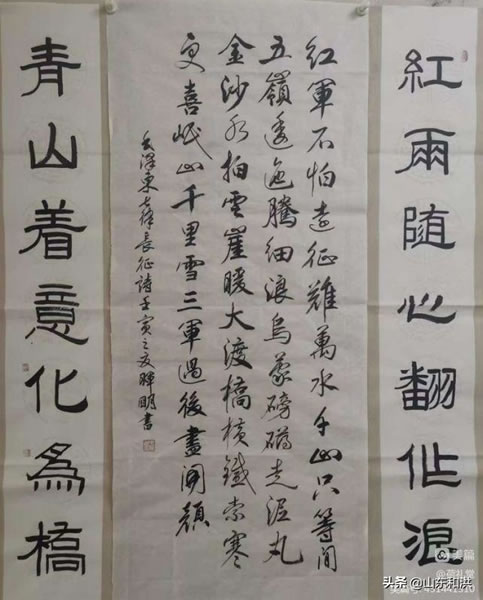 紅雨随心翻作浪
紅軍不怕遠征難萬水千山只等間
五嶺逶迤騰細浪烏蒙磅礴走泥丸
金沙水拍雲崖暖大渡橋橫鐵索寒
更喜岷山千里雪三軍過後盡開顏
毛澤東七律長征詩壬寅之夏暉明書
青山着意化為橋
美篇
头条 @山东和洪